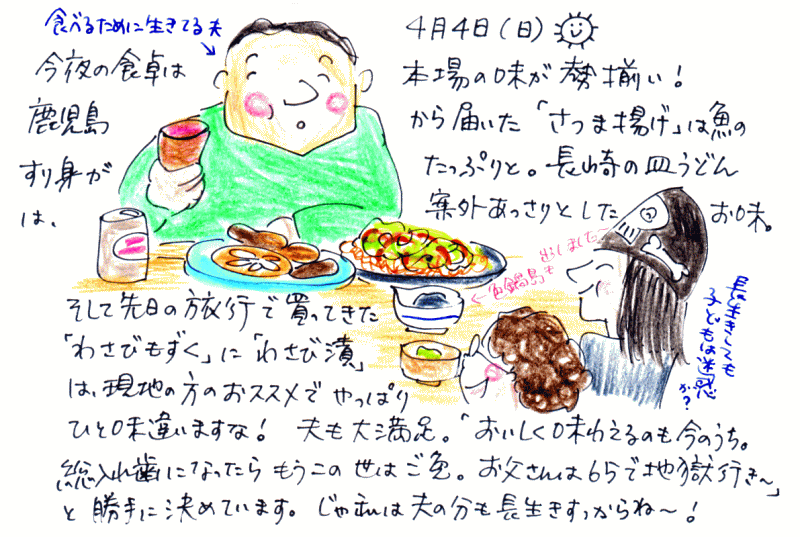 食べるために生きてる夫
4月4日(日)
今夜の食卓は 本場の味が勢揃い!
鹿児島 から届いた「さつま揚げ」は魚の
すり身が たっぷりと。長崎の皿うどん
は、 案外あっさりとした お味。
色鍋島も
出しました
長生きしても
子どもは迷惑
か?
そして先日の旅行で買ってきた
「わさびもずく」に「わさび漬」
は、現地の方のおススメで やっぱり
ひと味違いますな! 夫も大満足。「おいしく味わえるのも今のうち。
総入れ歯になったら もうこの世はご免。お父さんは65で地獄行き〜」
と勝手に決めています。じゃ私は夫の分も長生きすっからね〜!